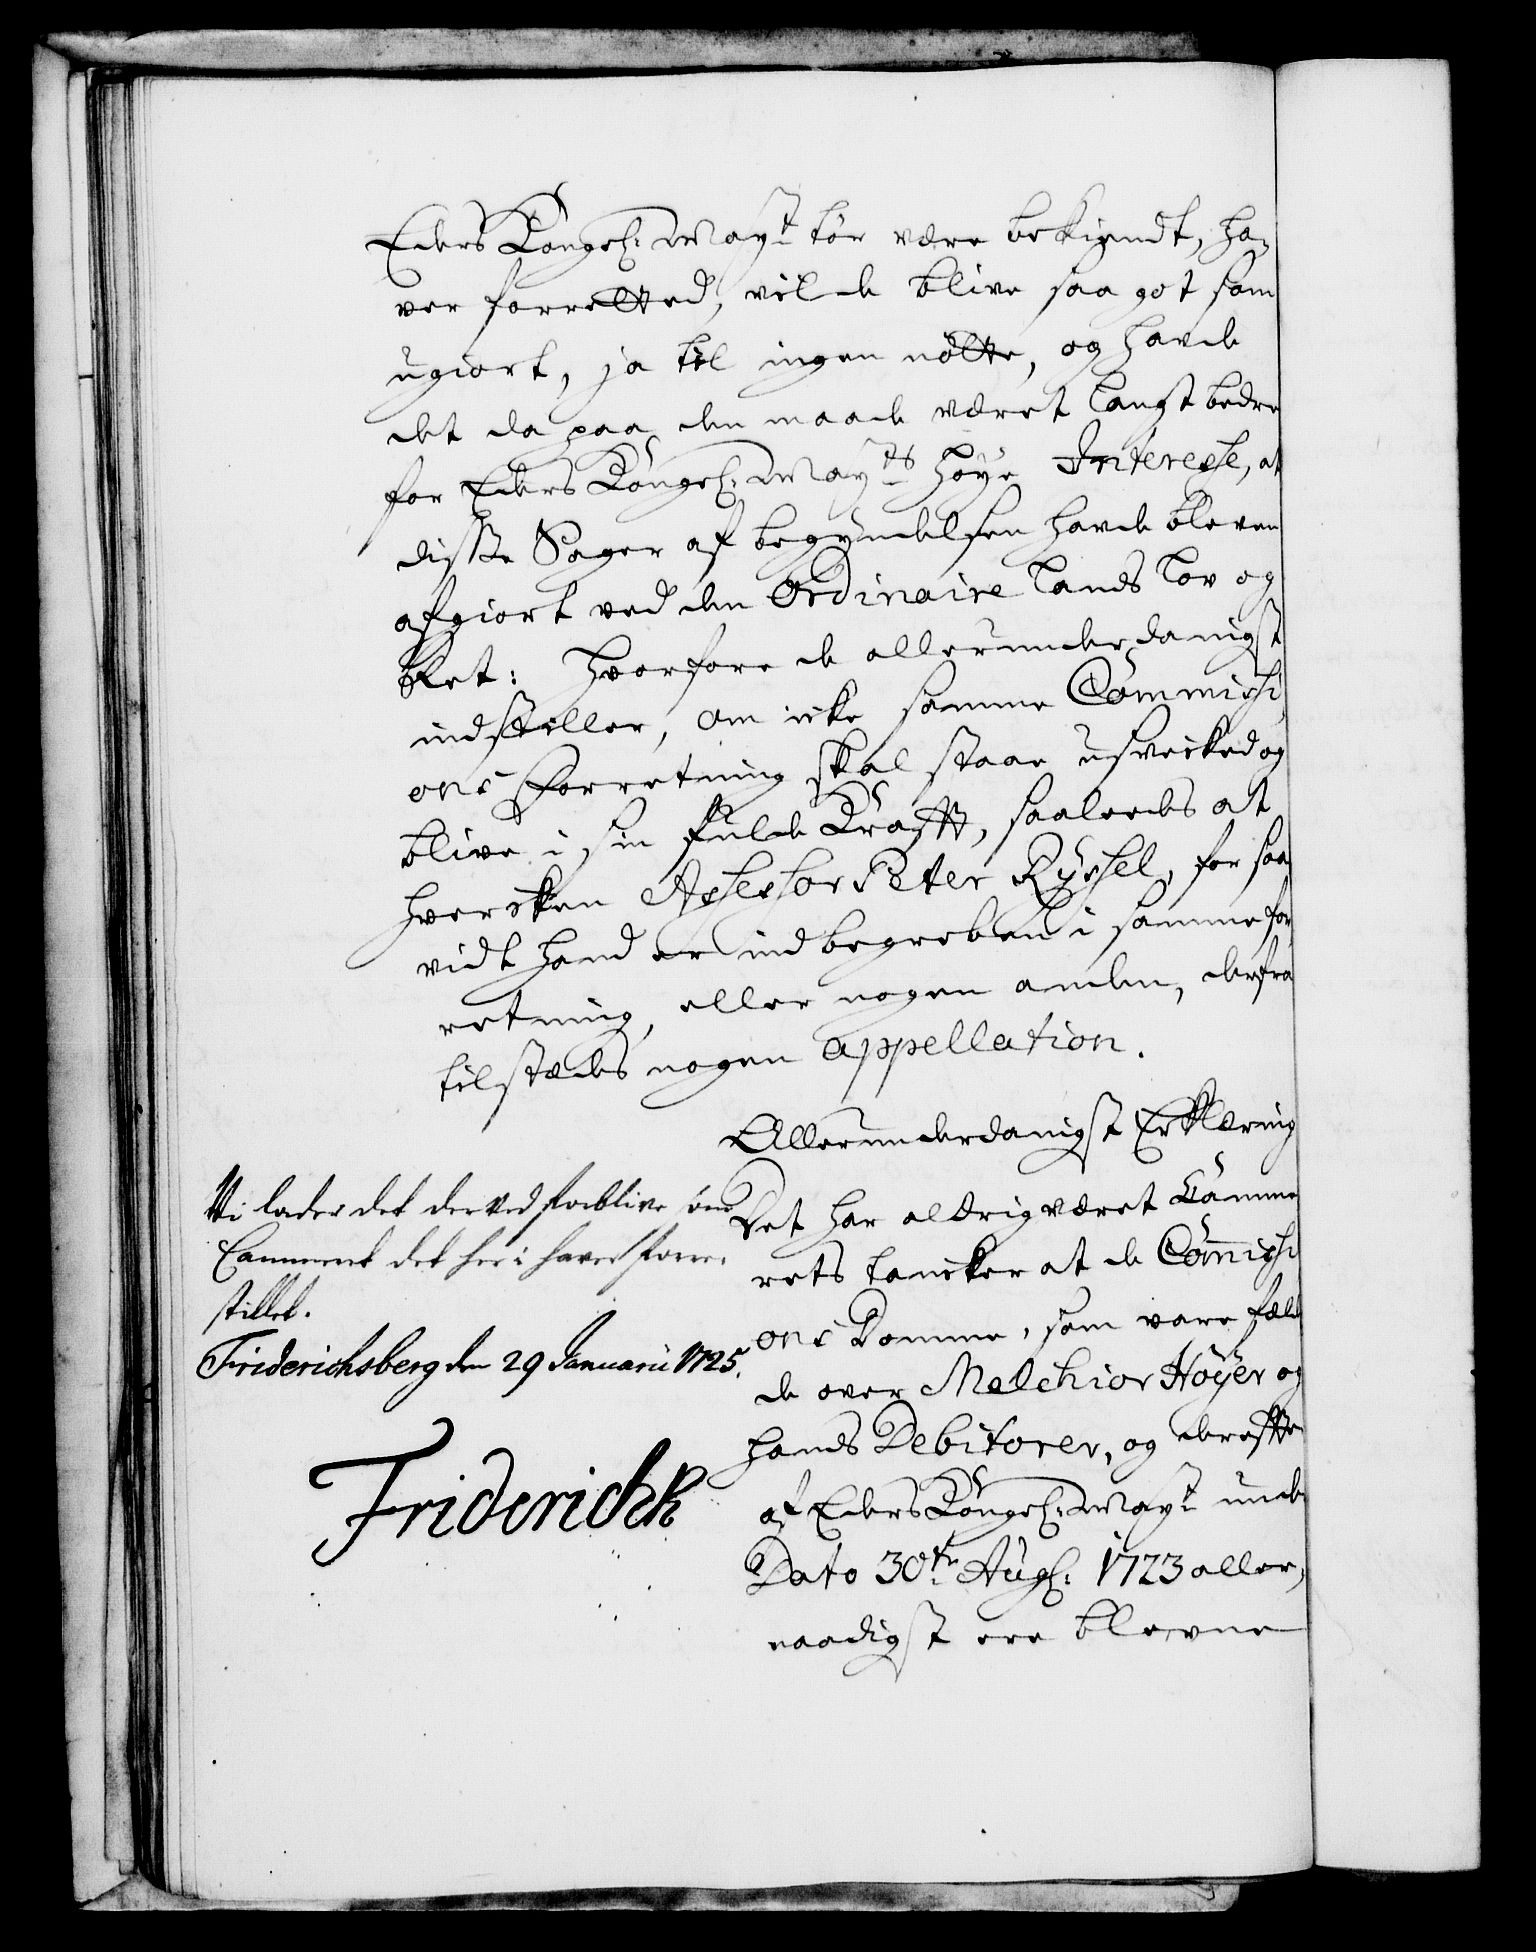 Eders Kongel: May:t tör være bekiendt, ha-
ver forretted, vilde blive saa got som
ugiort, ja til ingen nötte, og havde
det da paa den maade været langt bedre
for Eders Kongel: May:ts höye Interesse, at
disse Sager af begyndelsen havde bleven
afgiort ved den Ordinaire Lands Lov og
Ret: hvorfore de allerunderdanigst
indstiller, om icke samme Commissi-
ons Forretning skal staae usvecked og
blive i sin fulde Krafft, saaledes at
hvercken Assessor Peter Ryssel, for saa
vidt hand er indbegreben i samme for-
retning, eller nogen anden, derfra
tilstædes nogen appellation.
Allerunderdanigst Erklæring
Det har aldrig været Camme-
rets tancker at de Commissi-
ons Domme, som vare fæld-
de over Melchior Höyer og
hands Debitorer, og derefter
af Eders Kongel: May:t under
Dato 30:te Aug: 1723 aller-
naadigst ere blevne
Vi lader det der ved forblive som
Cammeret det her i haver forre-
stillet.
Friderichsberg den 29 Januarii 1725.
Friderich